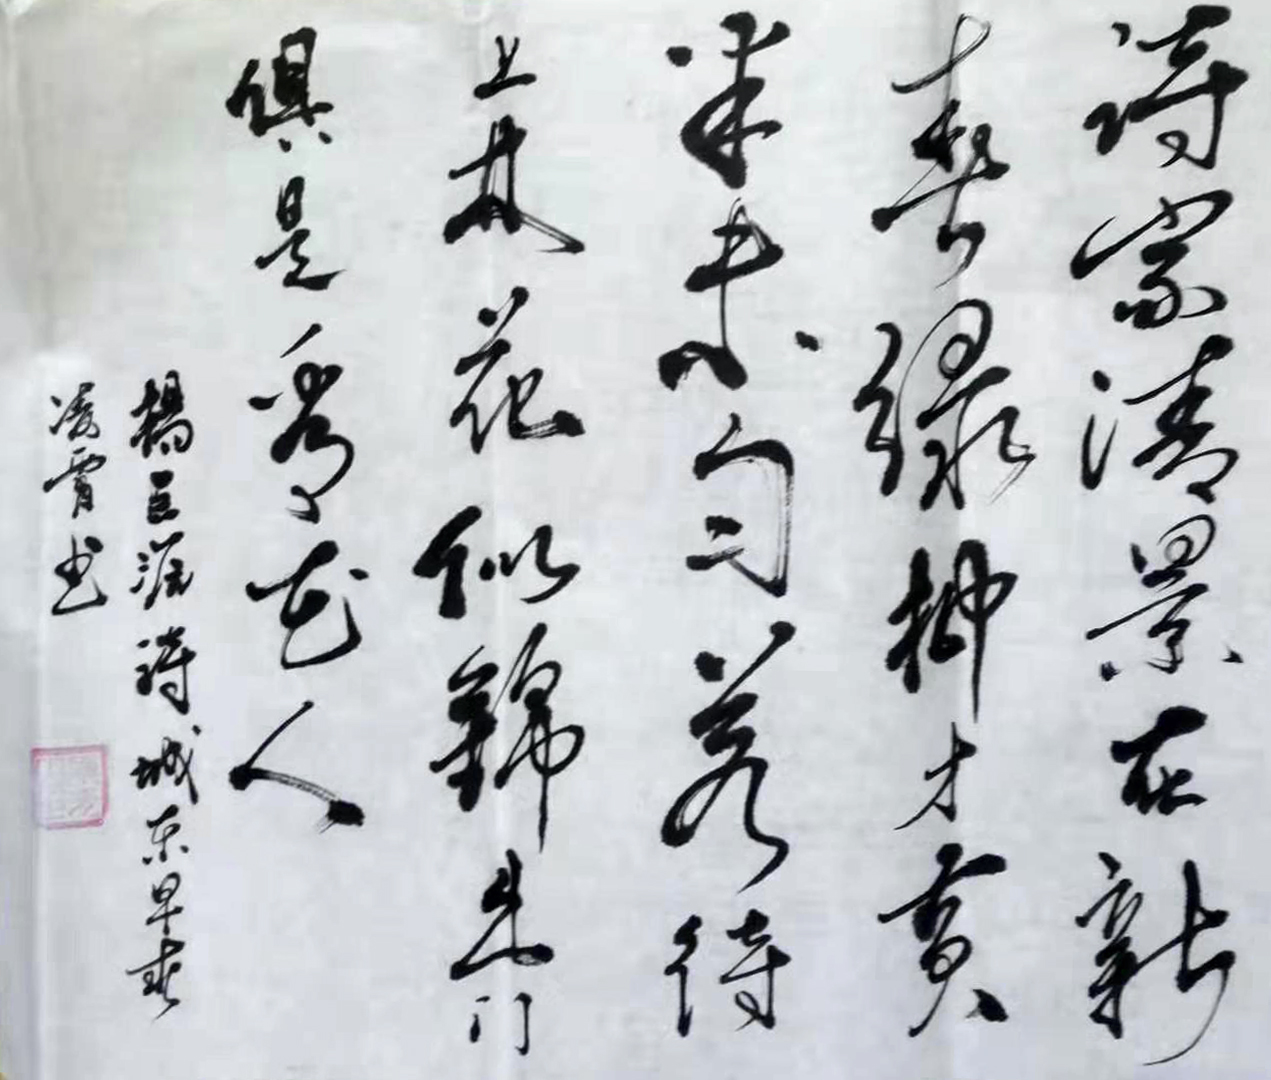 詩家清景在新
春绿柳才黄
半未匀若待
上林花似錦出门
俱是看花人
楊巨源詩城东早春
凌霄书